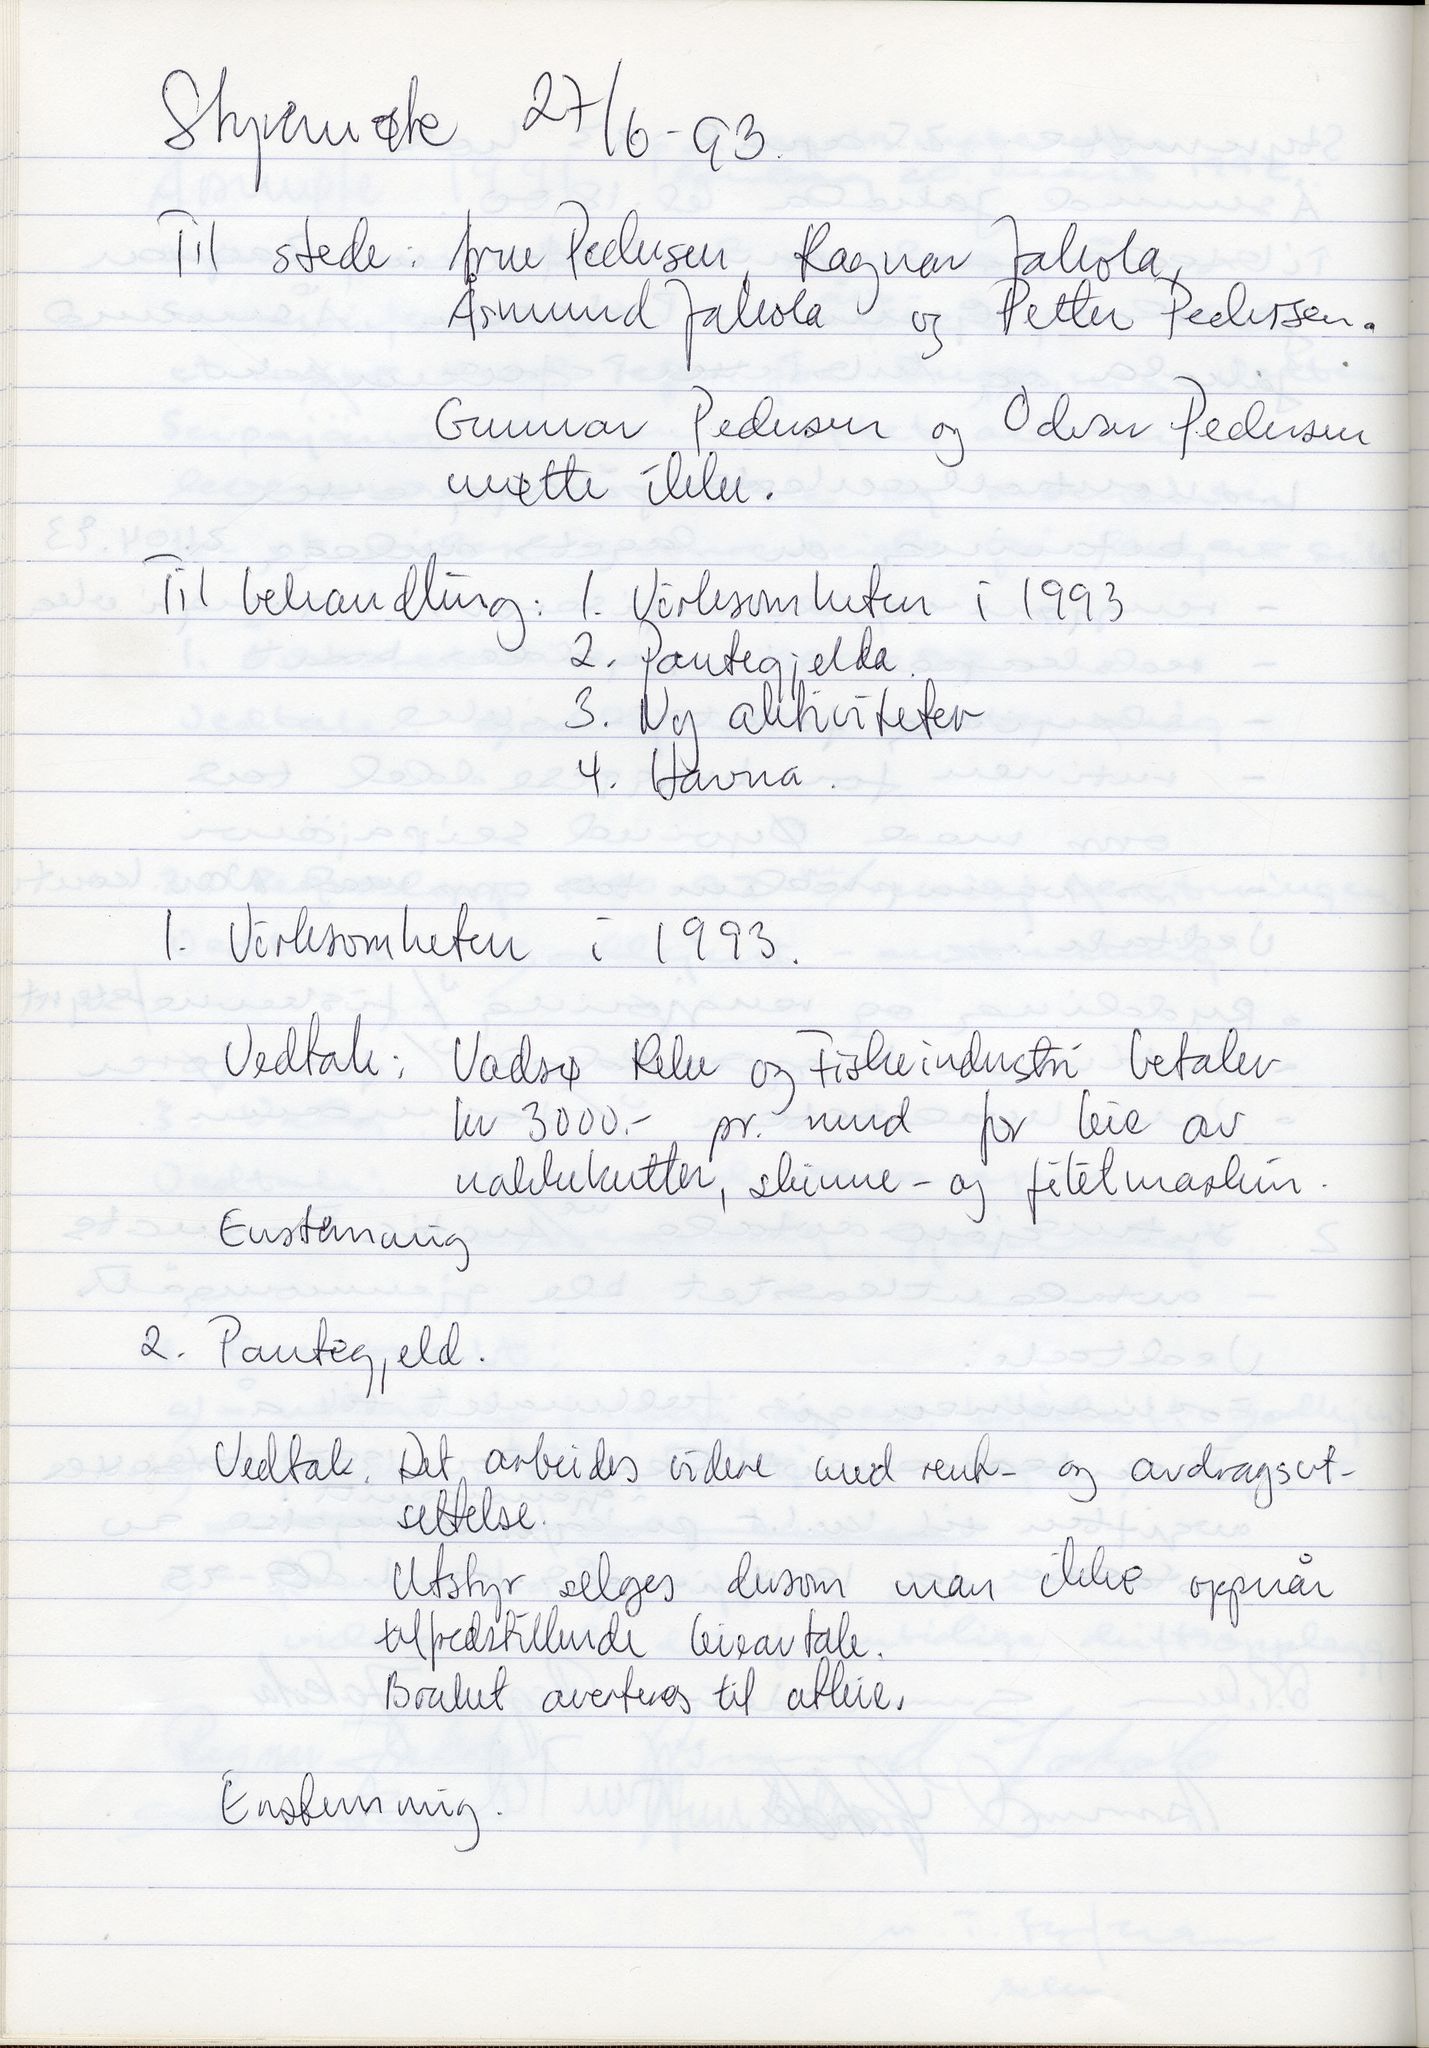 Styremøte 27/6-93.
Til stede: Arne Pedersen, Ragnar Jakola,
Åsmund Jakola og Petter Pedersen.
Gunnar Pedersen og Oddvar Pedersen
møtte ikke.
Til behandling: 1. Virksomheten i 1993
2. Pantegjelda.
3. Ny aktiviteter
4. Havna.
1. Virksomheten i 1993.
Vedtak: Vadsø Reke og Fiskeindustri betaler
kr 3000.- pr. mnd for leie av
nakkekutter, skinne- og filetmaskin.
Enstemmig
2. Pantegjeld.
Vedtak. Det arbeides videre med rente- og avdragsut-
settelse.
Utstyr selges dersom man ikke oppnår
tilfredstillende leieavtale.
Bruket averteres til utleie.
Enstemmig.